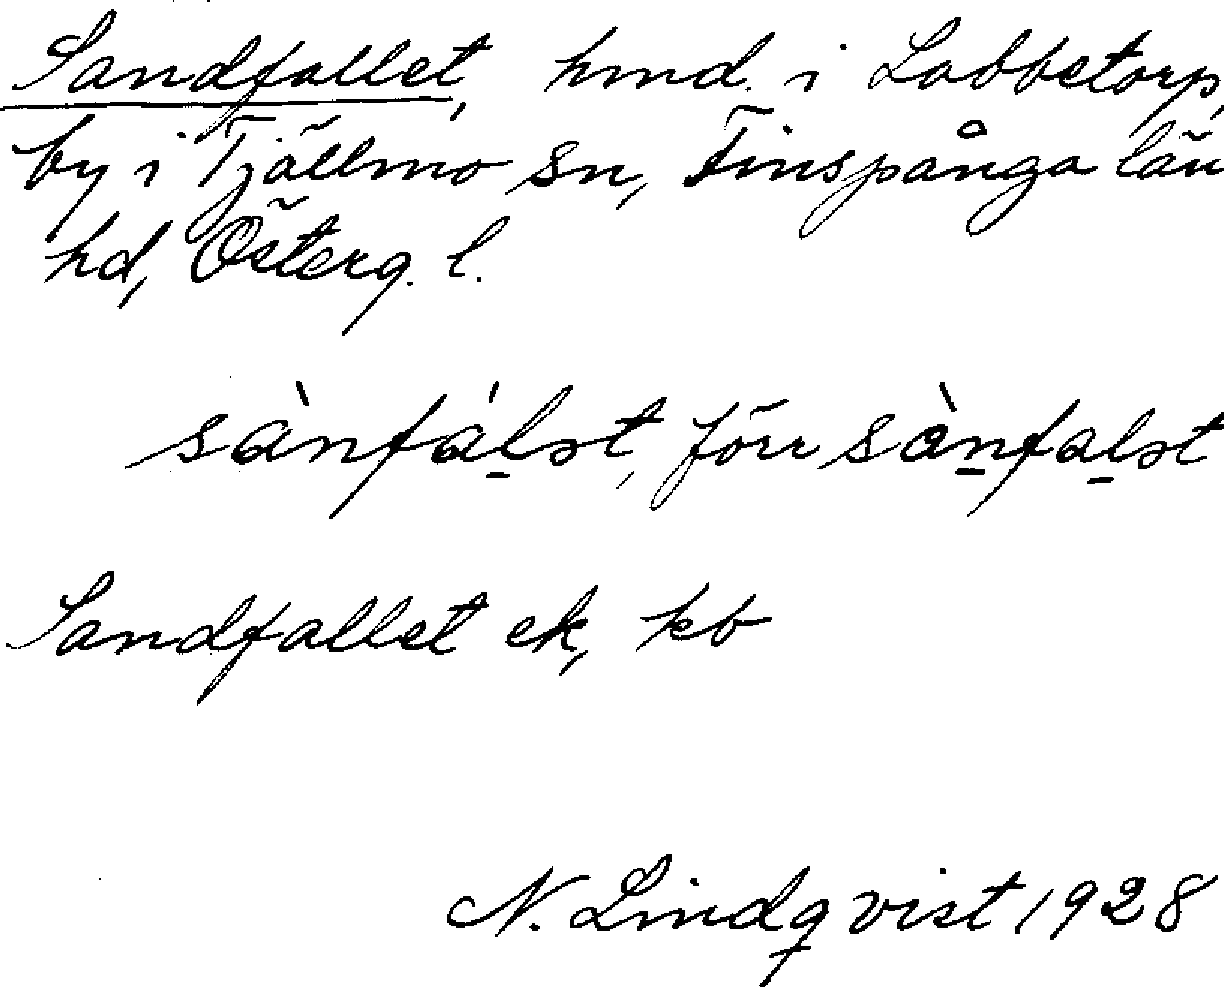 Sandfallet, hmd. i Labbetorp,
by i Tjällmo sn, Finspånga län
hd, Österg. l.
sànfál̠ət, förr sàn̠fal̠ət
Sandfallet ek, kb
N. Lindqvist 1928